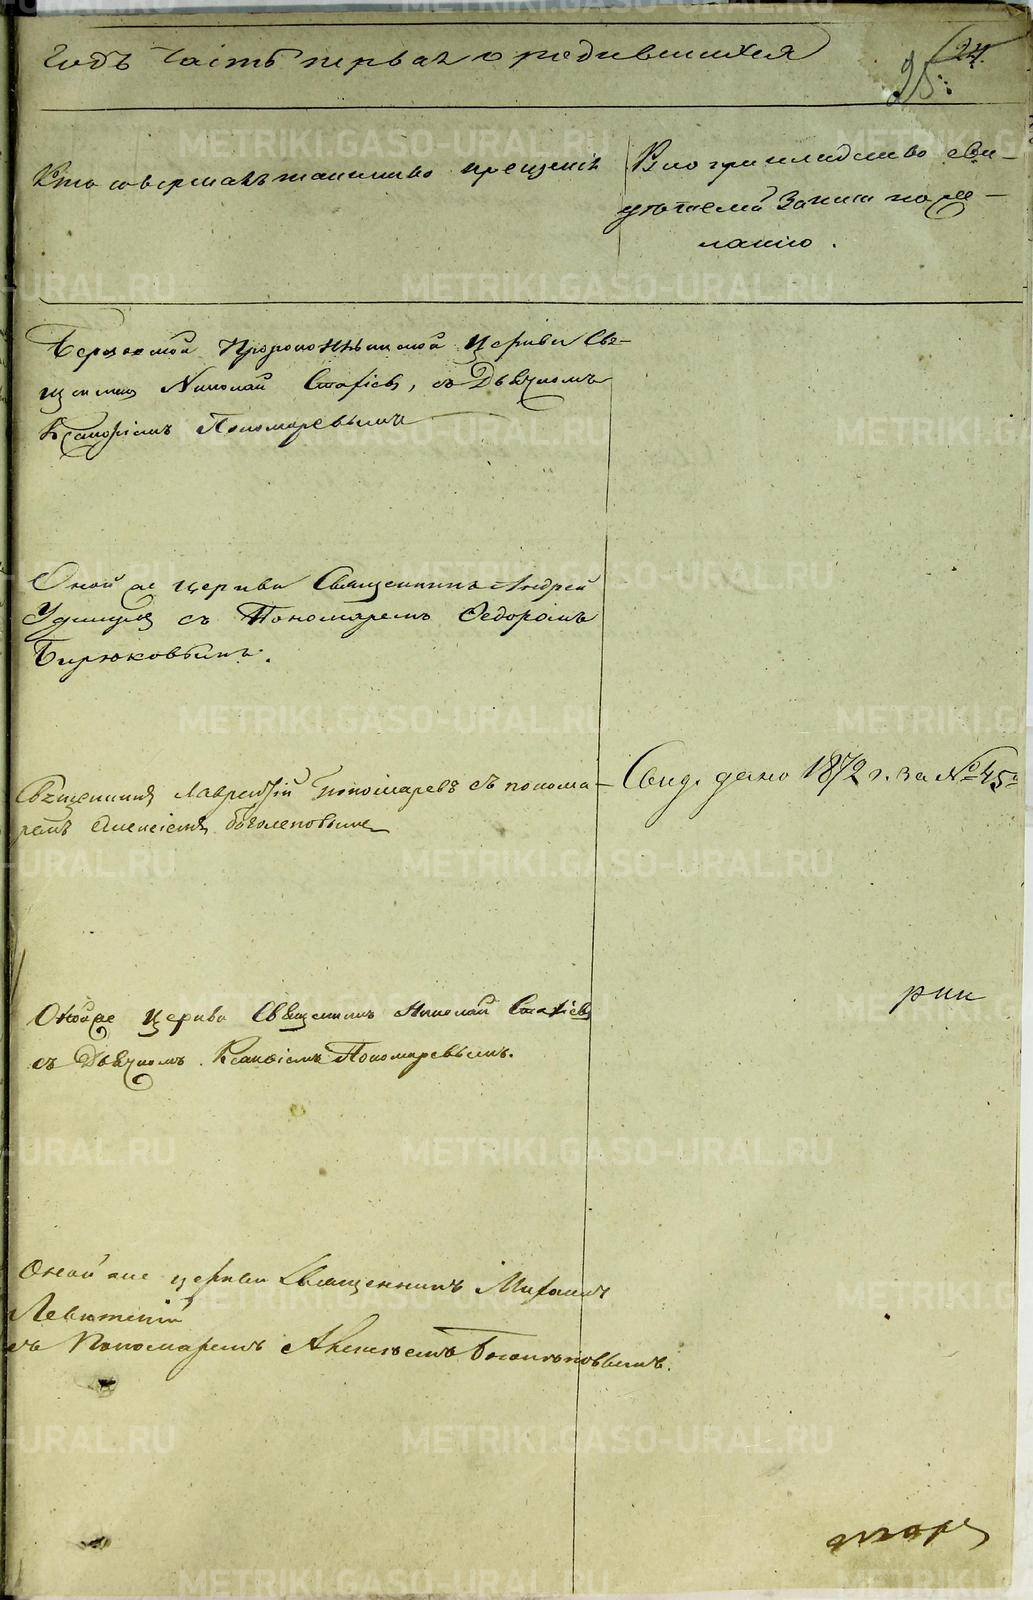 Годъ Часть первая о родившихся
24.
25.
Кто совершалъ таинство крещенія
Рукоприкладство сви-
дѣтелей записи по же-
ланію.
Церкви Свя-
щенникъ Николай Стахіевъ, съ Дьячкомъ
Пономаревымъ
Оной же церкви Священникъ Андрей
Удинцевъ съ Пономаремъ Ѳедоромъ
Бирюковымъ.
Священникъ Лаврентій Пономаревъ съ понома-
ремъ Алексіемъ Боголеповымъ
Свид. дано 1872 г. за №
Оной же Церкви Священникъ Николай Стахіевъ
съ Дьячкомъ Пономаревымъ.
рик
Оной же церкви Священникъ Михаилъ
Левитскій
съ Пономаремъ Алексѣемъ Боголѣповымъ.
METRIKI.GASO-URAL.RU